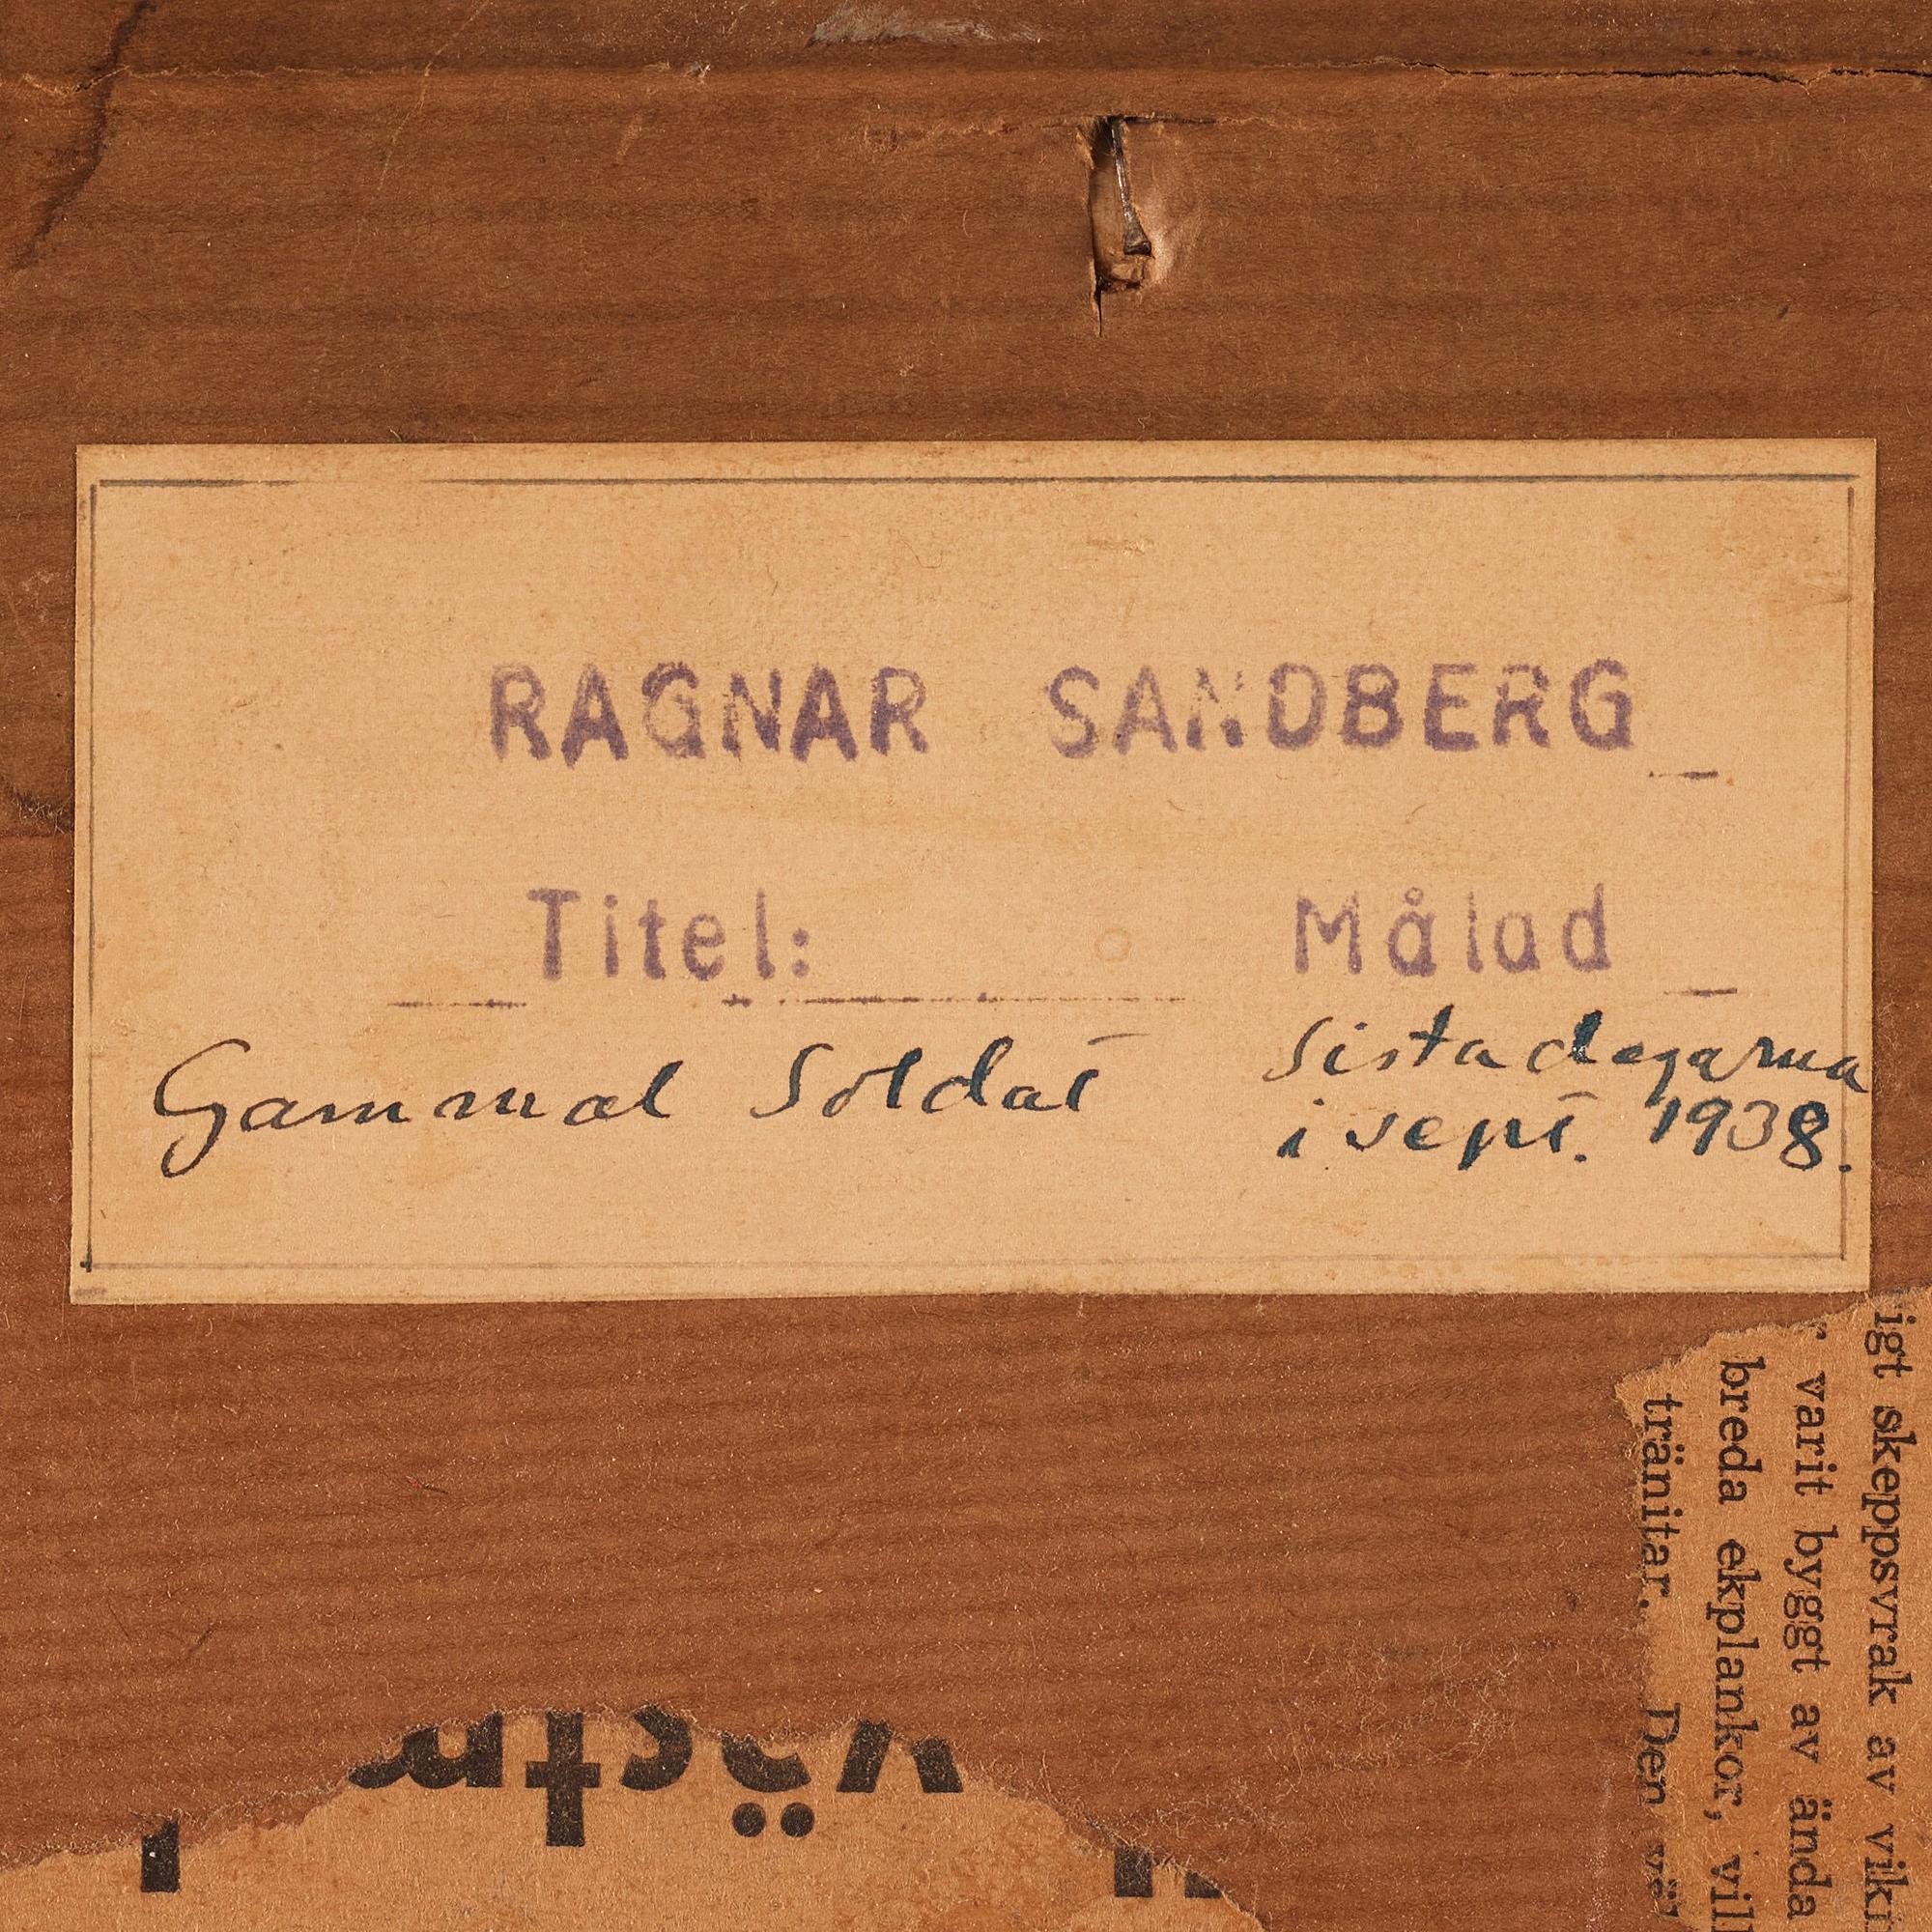 RAGNAR SANDBERG
Titel: Målad
Gammal Soldat
sista dagarna
i sept. 1938.
igt skeppsvrak av viki
r varit byggt av ända
breda ekplankor, vil
tränitar. Den
väst